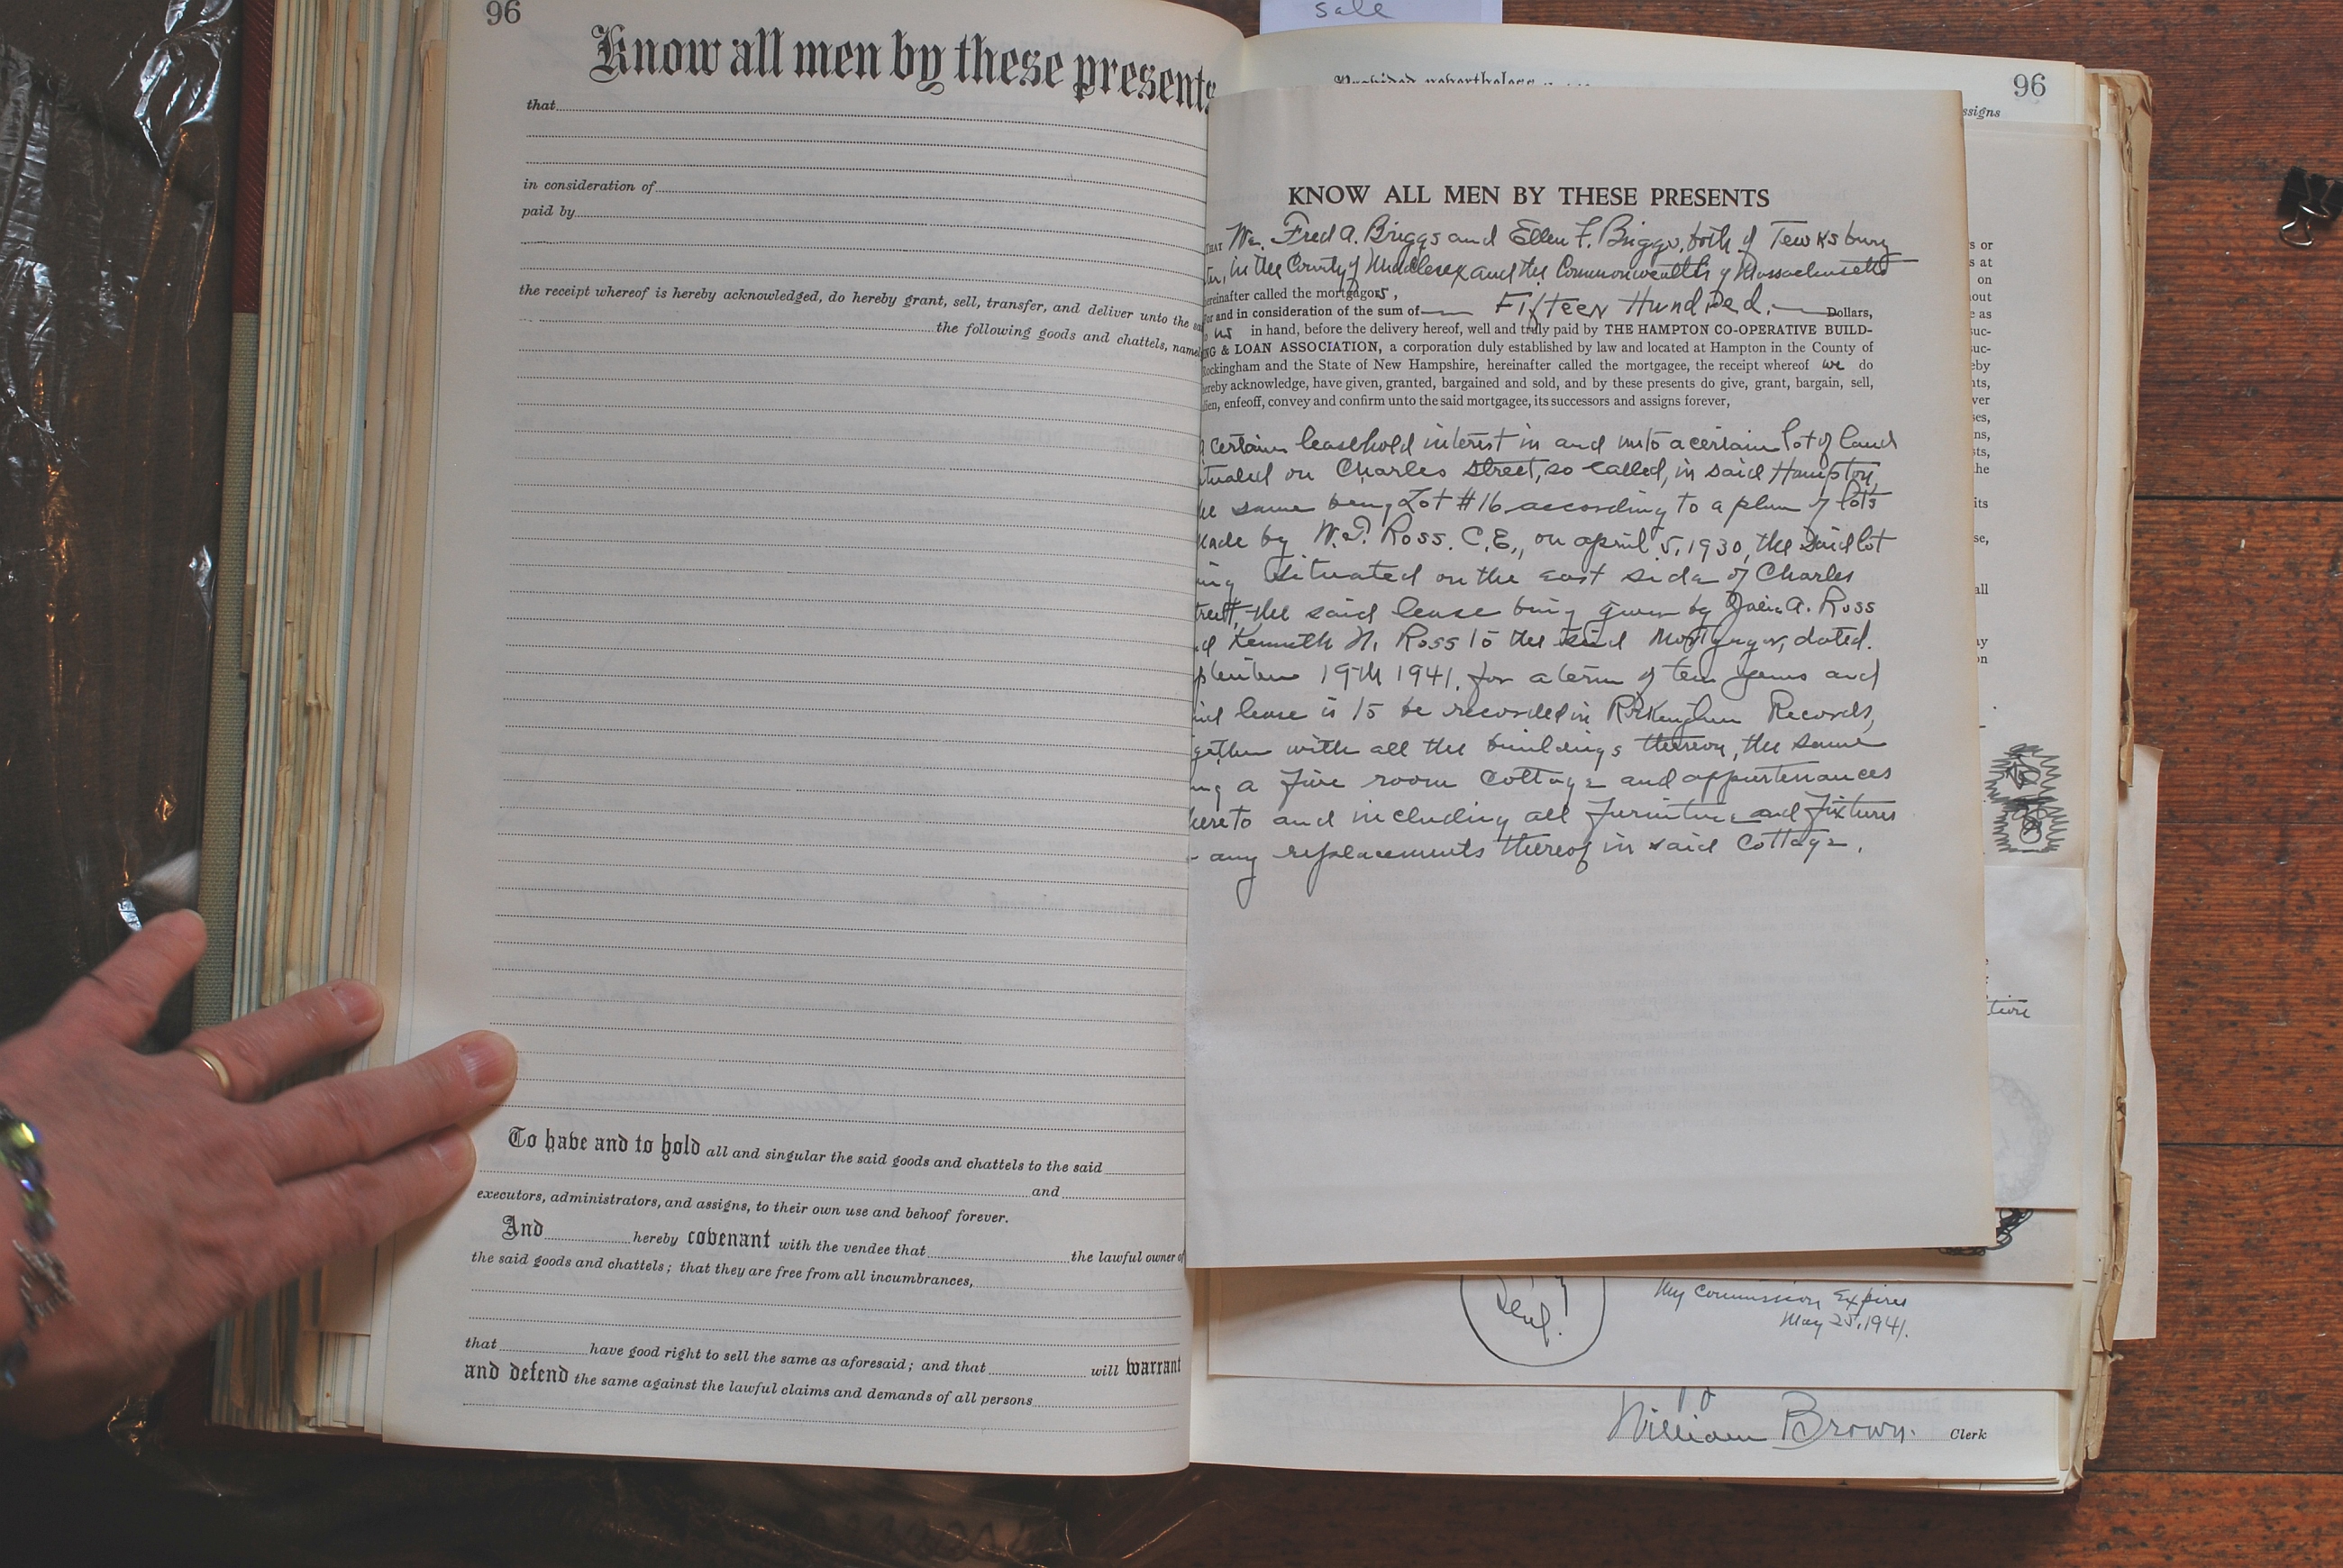 96
Know all men by these presents
that
in consideration of
paid by
the receipt whereof is hereby acknowledged, do hereby grant, sell, transfer, and deliver unto the
the following goods and chattels, namel
To have and to hold all and singular the said goods and chattels to the said
and
executors, administrators, and assigns, to their own use and behoof forever.
And hereby covenant with the vendee that the lawful owner of
the said goods and chattels; that they are free from all incumbrances,
that have good right to sell the same as aforesaid; and that will warrant
and defend the same against the lawful claims and demands of all persons
sale
Provided nevertheless
96
ssigns
KNOW ALL MEN BY THESE PRESENTS
THAT We, Fred A. Briggs and Ellen F. Briggs, both of Tewksbury
in the County of Middlesex and the Commonwealth of Massachusetts
ereinafter called the mortgagors,
or and in consideration of the sum of Fifteen Hundred. Dollars,
us in hand, before the delivery hereof, well and truly paid by THE HAMPTON CO-OPERATIVE BUILD-
NG & LOAN ASSOCIATION, a corporation duly established by law and located at Hampton in the County of
Rockingham and the State of New Hampshire, hereinafter called the mortgagee, the receipt whereof we do
ereby acknowledge, have given, granted, bargained and sold, and by these presents do give, grant, bargain, sell,
lien, enfeoff, convey and confirm unto the said mortgagee, its successors and assigns forever,
A certain leasehold interest in and unto a certain lot of land
ituated on Charles Street, so called, in said Hampton,
he same being Lot #16 according to a plan of lots
made by W.T. Ross. C.E., on April 5, 1930, the said lot
ing situated on the east side of Charles
treet, the said lease being given by A. Ross
nd Kenneth N. Ross to the said Mortgagor, dated.
ptember 19th 1941, for a term of ten years and
aid lease is to be recorded in Rockingham Records,
gether with all the buildings thereon, the same
ing a five room cottage and appurtenances
hereto and including all furniture and fixtures
any replacements thereof in said cottage.
s or
s at
on
out
e as
uc-
uc-
eby
nts,
ver
ses,
ns,
sts,
the
its
se,
all
ay
on
My Commission Expires
May 25, 1941.
William Brown. Clerk